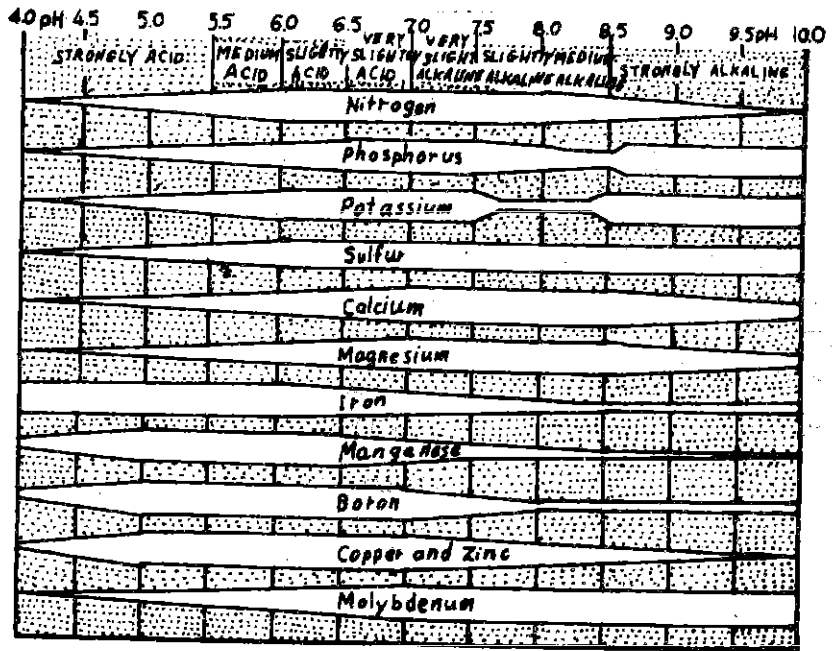 4.0 pH 4.5 5.0 5.5 6.0 6.5 7.0 7.5 8.0 8.5 9.0 9.5pH 10.0
STRONGLY ACID MEDIUM ACID SLIGHTLY ACID VERY SLIGHTLY ACID VERY SLIGHT ALKALINE SLIGHTLY ALKALINE MEDIUM ALKALINE STRONGLY ALKALINE
Nitrogen
Phosphorus
Potassium
Sulfur
Calcium
Magnesium
Iron
Manganese
Boron
Copper and Zinc
Molybdenum